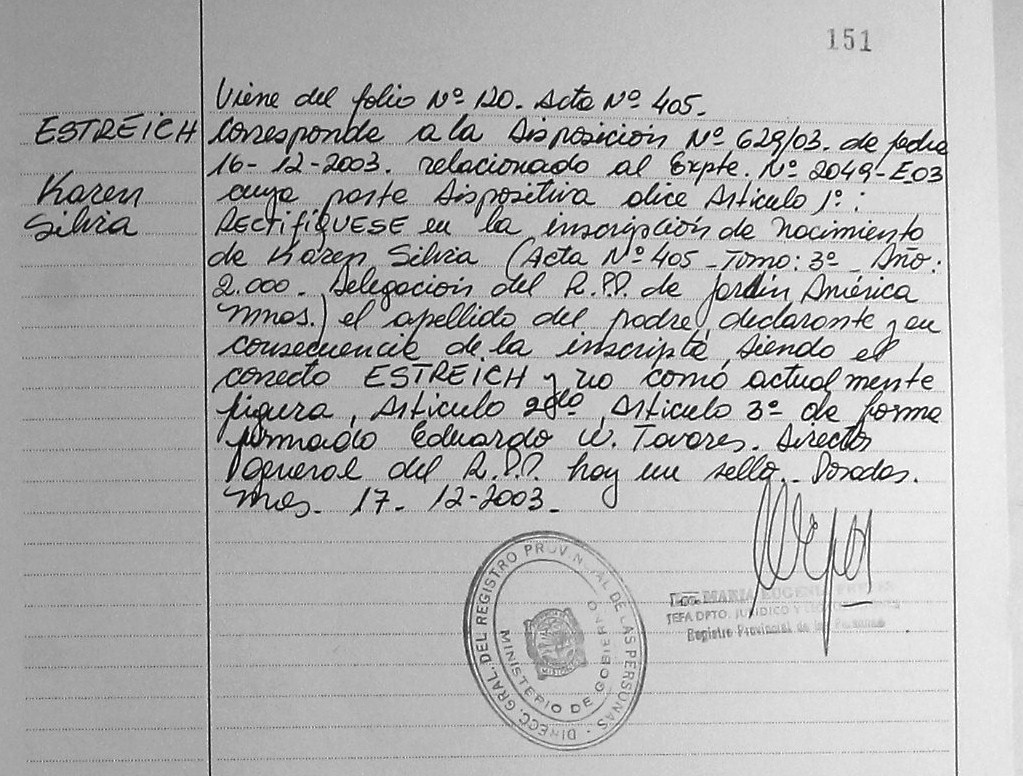 151
Viene del folio Nº 120. Acta Nº 405.
ESTREICH
Corresponde a la Disposición Nº 629/03. de fecha
16-12-2003. relacionado al Expte. Nº 2049-E03
Karen
cuya parte Dispositiva dice Artículo 1º:
Silvia
RECTIFIQUESE en la inscripción de nacimiento
de Karen Silvia (Acta Nº 405 - Tomo: 3º - Año:
2.000. Delegación del R.P.P. de Jardín América
Mnes.) el apellido del padre, declarante y en
consecuencia de la inscripta, siendo el
correcto ESTREICH y no como actualmente
figura. Artículo 2do, Artículo 3º de forma
firmado Eduardo W. Tavares. Director
general del R.P.P. hay un sello. Posadas.
Mnes. 17. 12-2003.
DIRECC. GRAL. DEL REGISTRO PROVINCIAL DE LAS PERSONAS
MINISTERIO DE GOBIERNO
MARIA EUGENIA
JEFA DPTO. JURIDICO Y
Registro Provincial de las Personas